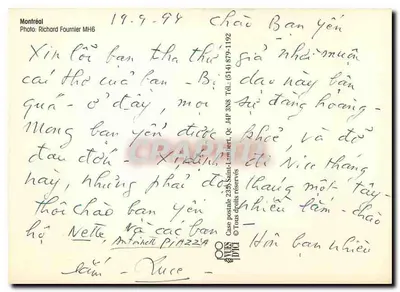 Montréal
Photo: Richard Fournier MH6
19-9-94 chào Bạn Yến
Xin lỗi bạn tha thứ giả nhời muộn
cái thơ của bạn - Bị dạo này bận
quá - ở đây, mọi sự đàng hoàng -
Mong bạn yến được khoẻ, và đỡ
đau đớn - đi Nice tháng
này, nhưng phải đợi tháng một tây -
thôi chào bạn yến nhiều lắm - chào
hộ Nette, và các bạn
Antoinette PIAZZA
Hôn bạn nhiều
lắm - Luce -
Case postale 235, Saint-Lambert, Qc J4P 3N8 Tél.: (514) 879-1192
© Tous droits réservés